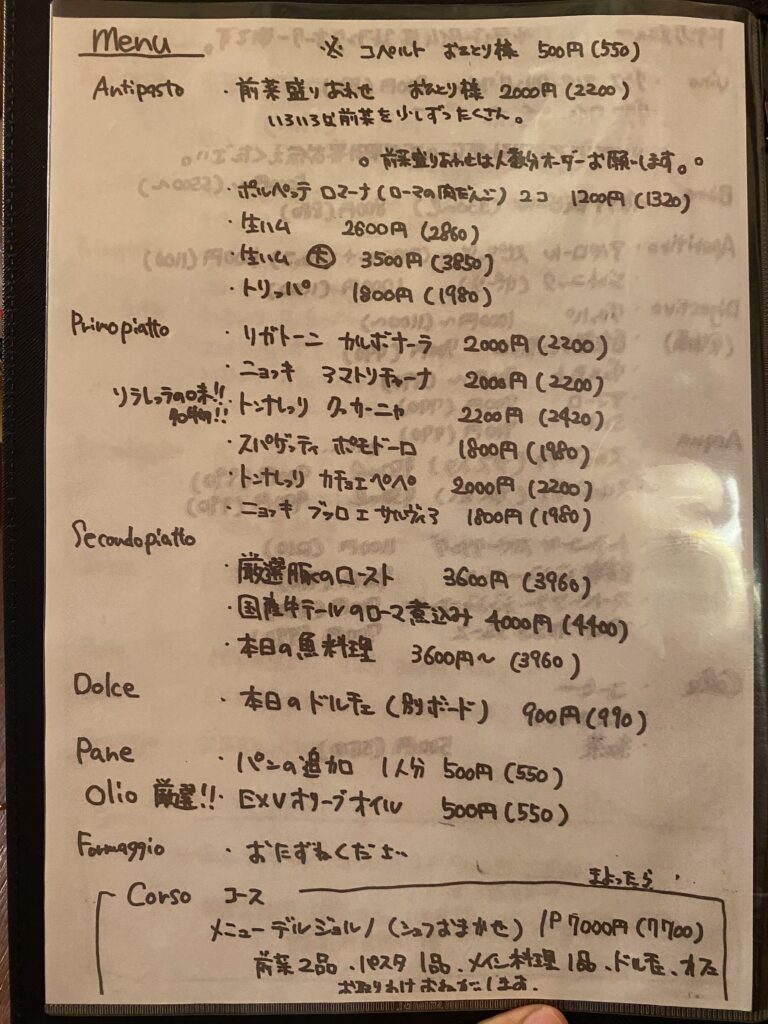 Menu
※ コペルト お一人様 500円(550)
Antipasto ・前菜盛りあわせ お一人様 2000円(2200)
いろいろな前菜を少しずつたくさん。
。前菜盛りあわせは人数分オーダーお願いします。。
・ポルペッテ ロマーナ(ローマの肉だんご) 2コ 1200円(1320)
・生ハム 2600円(2860)
・生ハム 大 3500円(3850)
・トリッパ 1800円(1980)
Primopiatto ・リガトーニ カルボナーラ 2000円(2200)
・ニョッキ アマトリチャーナ 2000円(2200)
の味!!
名物!! ・トンナレッリ クッカーニャ 2200円(2420)
・スパゲッティ ポモドーロ 1800円(1980)
・トンナレッリ カチョエペペ 2000円(2200)
・ニョッキ ブッロ エ サルヴィア 1800円(1980)
Secondopiatto
・厳選豚のロースト 3600円(3960)
・国産牛テールのローマ煮込み 4000円(4400)
・本日の魚料理 3600円〜(3960)
Dolce ・本日のドルチェ(別ボード) 900円(990)
Pane ・パンの追加 1人分 500円(550)
Olio 厳選!!・EXVオリーブオイル 500円(550)
Formaggio ・おたずねください
まよったら
Corso コース
メニューデルジョルノ(シェフおまかせ) 1P 7000円(7700)
前菜2品、パスタ1品、メイン料理1品、ドルチェ、カフェ
お取りわけおねがいします.